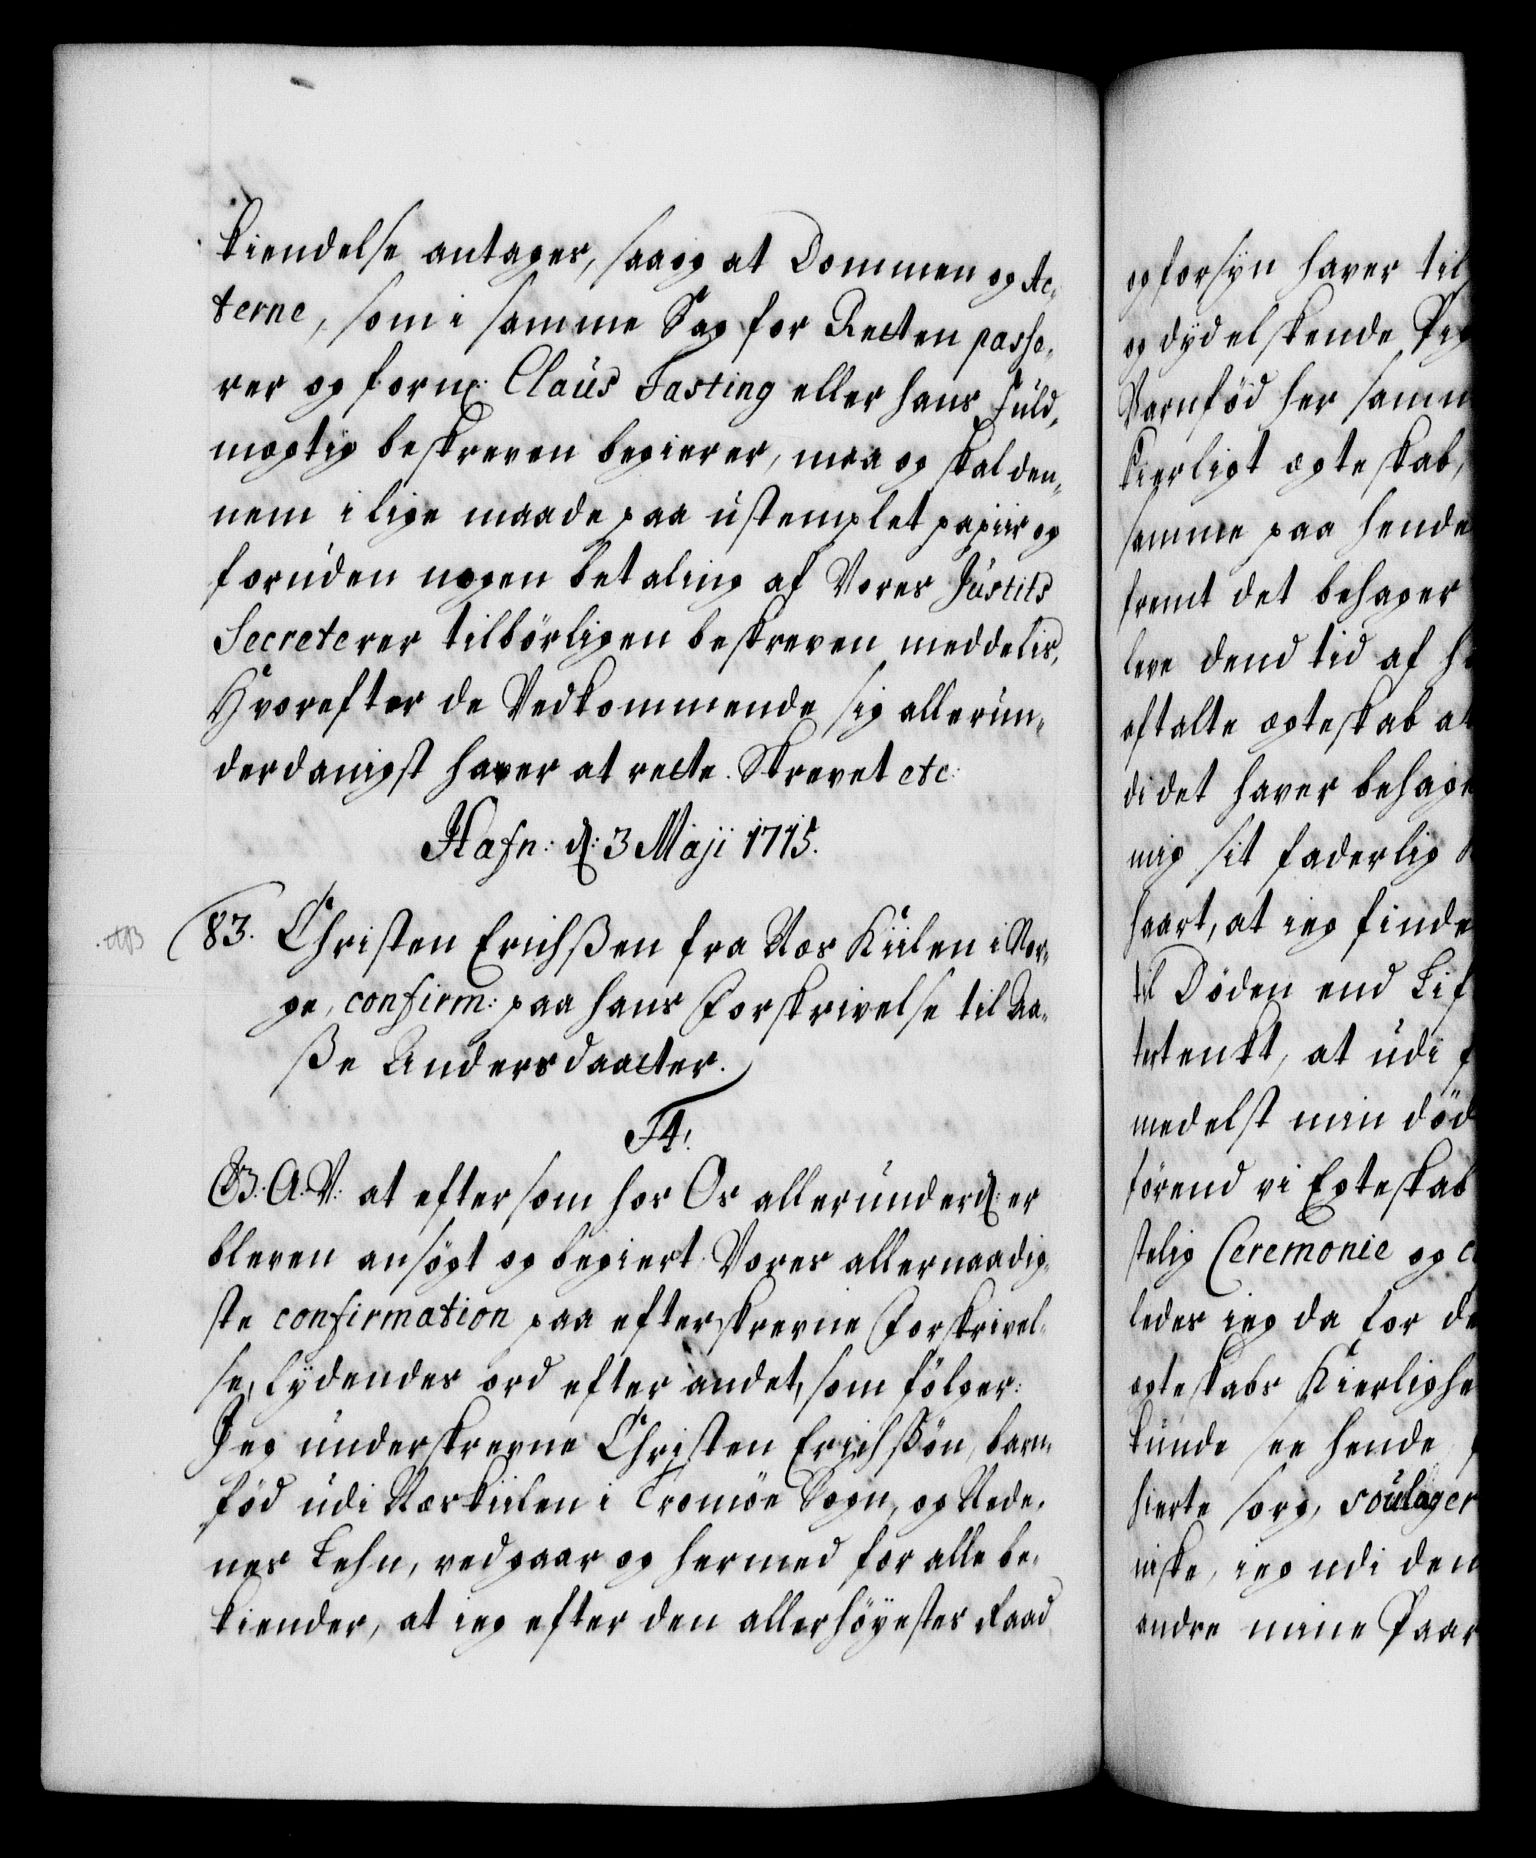 kiendelse antages, saa og at Dommen og Ac-
terne, som i samme Sag for Retten passe-
rer og forn: Claus Fasting eller hans Fuld-
mægtig beskreven begierer, maa og skal den-
nem i lige maade paa ustemplet papiir og
foruden nogen betaling af Vores Justits
Secreterer tilbørligen beskreven meddelis,
Hvorefter de Vedkommende sig allerun-
derdanigst haver at rette. Skrevet etc:
Hafn: d: 3 Maji 1715.
83. Christen Erichßen fra Næs Kiilen i Nor-
ge, confirm: paa hans Forskrivelse til Aa-
ße Andersdaatter.
F4.
G. A. V: at eftersom hos Os allerunderd: er
bleven ansøgt og begiert Vores allernaadig-
ste confirmation paa efterskrevne Forskrivel-
se, lydendes ord efter andet, som følger:
Jeg underskrevne Christen Erichssøn, barn-
fød udi Næskiilen i Tromøe Sogn, og Nede-
nes Lehn, vedgaar og hermed for alle be-
kiender, at ieg efter den allerhøyestes Raad
og forsyn haver til
og dydelskende Pig
Barnfød her samm
kierligt ægteskab,
samme paa hende
fremt det behager
leve dend tid af h
aftalte ægteskab at
di det haver behage
mig sit faderlig
haart, at ieg finde
til Døden end Lif
tertenkt, at udi f
medelst min død
førend vi Egteskab
stelig Ceremonie og c
ledes ieg da for de
egteskabs Kierlighe
kunde see hende
hierte sorg, soulager
niske, ieg udi den
andre mine Paar